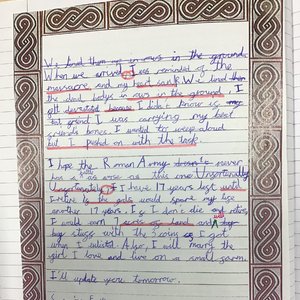 We lined them up in rows in the ground.
When we arrived I was reminded of the
massacre and my heart sank. We lined then
the dead bodys in rows in the ground. I
got because I didn't know is my
best friend I was carrying my best
friends bones. I wanted to weep aloud
but I pushed on with the task.
I hope the Roman Army never
has a as worse as this one. Unfortunatly
Unfortunately I have 17 years left until
I retire is the gods would spare my life
another 17 years. If I don't die and retire,
I will own 7 acres of land and
big stage with the coins I got
when I enlisted. Also, I will marry the
girl I love and live on a small farm.
I'll update you tomorrow.